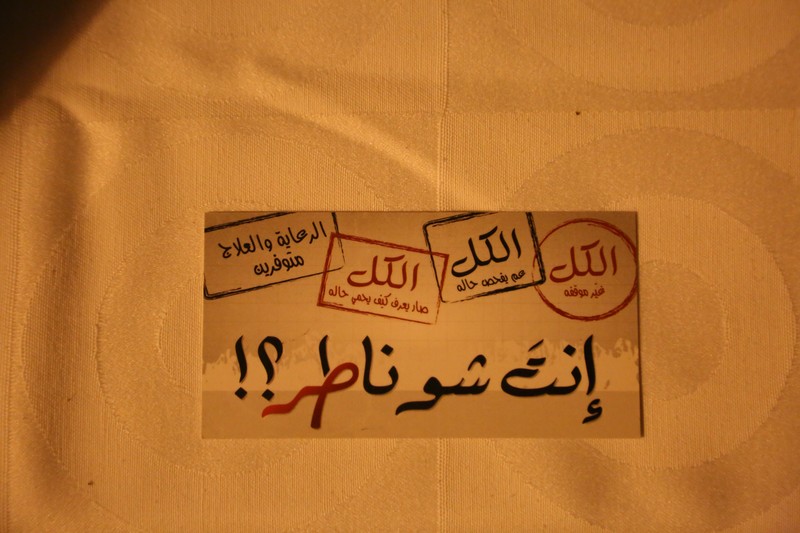 الكل
غيّر موقفه
الكل
عم يفحص حاله
الكل
صار يعرف كيف يحمي حاله
الرعاية والعلاج
متوفرين
إنتَ شو ناطر؟!